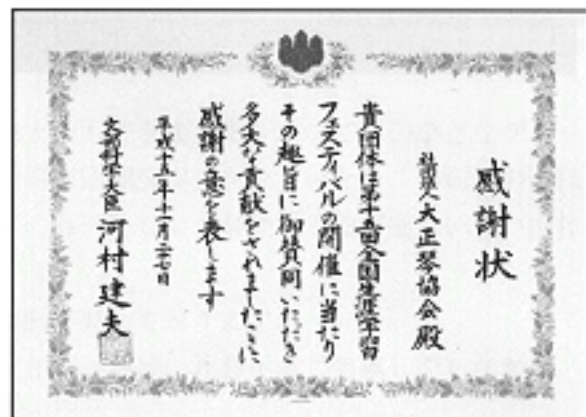 感謝状
社団法人大正琴協会殿
貴団体は第十五回全国生涯学習
フェスティバルの開催に当たり
その趣旨に御賛同いただき
多大な貢献をされましたことに
感謝の意を表します
平成十五年十一月二十七日
文部科学大臣 河村建夫